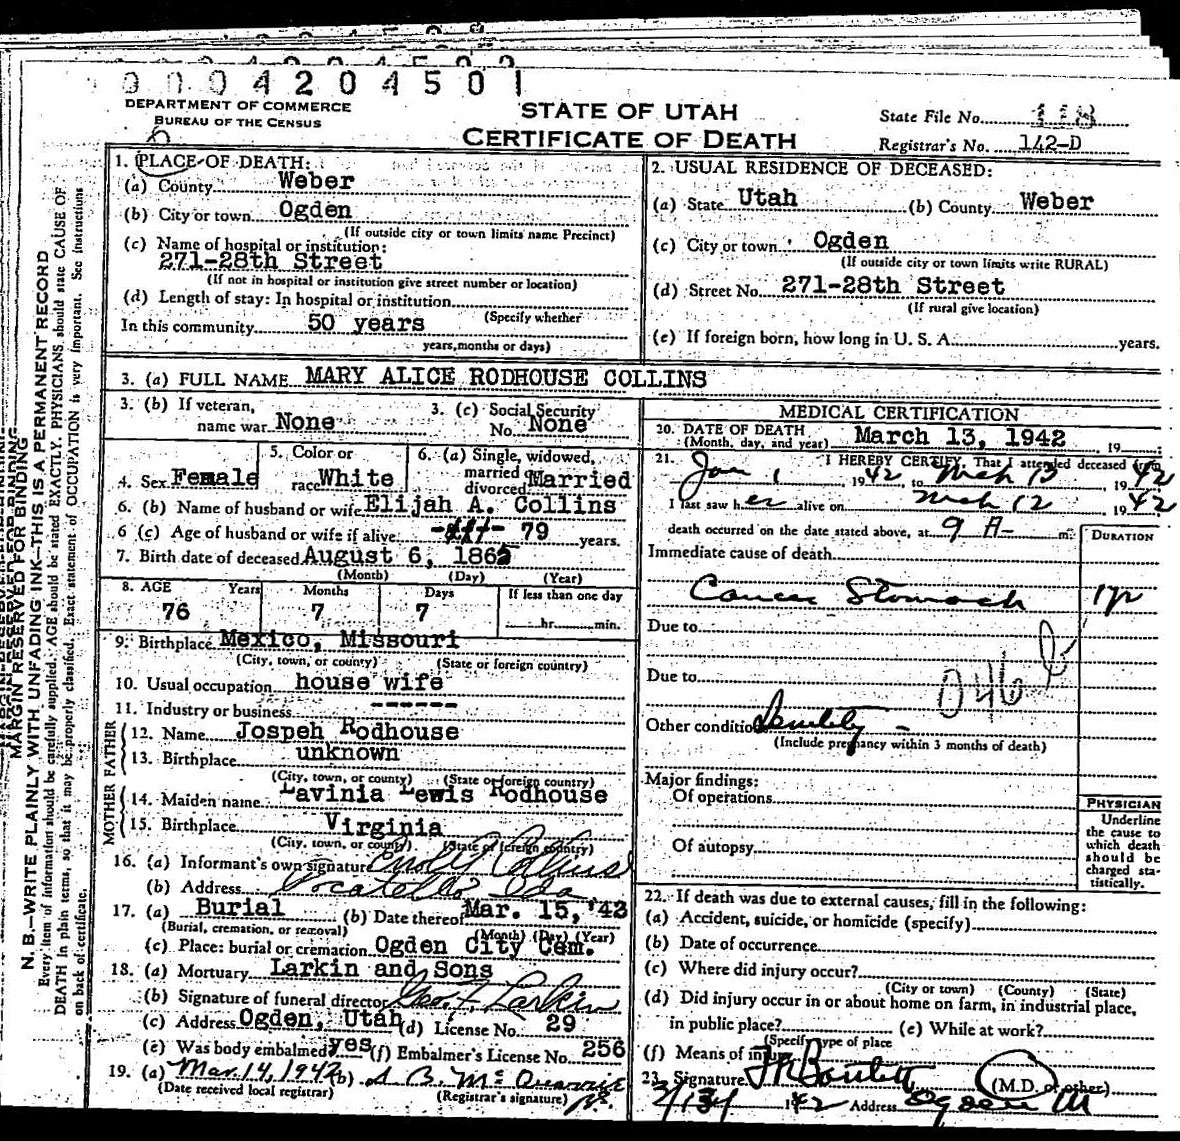 0 0 0 4 2 0 4 5 0 1
DEPARTMENT OF COMMERCE
BUREAU OF THE CENSUS
STATE OF UTAH
CERTIFICATE OF DEATH
State File No. 118
Registrar's No. 142-D
1. PLACE OF DEATH:
(a) County Weber
(b) City or town Ogden
(If outside city or town limits name Precinct)
(c) Name of hospital or institution:
271-28th Street
(If not in hospital or institution give street number or location)
(d) Length of stay: In hospital or institution
(Specify whether
In this community 50 years
years, months or days)
2. USUAL RESIDENCE OF DECEASED:
(a) State Utah (b) County Weber
(c) City or town Ogden
(If outside city or town limits write RURAL)
(d) Street No. 271-28th Street
(If rural give location)
(e) If foreign born, how long in U. S. A. years.
3. (a) FULL NAME MARY ALICE RODHOUSE COLLINS
3. (b) If veteran, name war None
3. (c) Social Security No. None
4. Sex Female
5. Color or race White
6. (a) Single, widowed, married divorced Married
6. (b) Name of husband or wife Elijah A. Collins
6 (c) Age of husband or wife if alive 79 years.
7. Birth date of deceased August 6, 1865
(Month) (Day) (Year)
8. AGE Years Months Days If less than one day
76 7 7 hr. min.
9. Birthplace Mexico, Missouri
(City, town, or county) (State or foreign country)
10. Usual occupation house wife
11. Industry or business ------
FATHER
12. Name Jospeh Rodhouse
13. Birthplace unknown
(City, town, or county) (State or foreign country)
MOTHER
14. Maiden name Lavinia Lewis Rodhouse
15. Birthplace Virginia
(City, town, or county) (State or foreign country)
16. (a) Informant's own signature Collins
(b) Address Pocatello Ida
17. (a) Burial (b) Date thereof Mar. 15, '42
(Burial, cremation, or removal) (Month) (Day) (Year)
(c) Place: burial or cremation Ogden City Cem.
18. (a) Mortuary Larkin and Sons
(b) Signature of funeral director Geo. F. Larkin
(c) Address Ogden, Utah (d) License No. 29
(e) Was body embalmed yes (f) Embalmer's License No. 256
19. (a) Mar. 14, 1942 (b)
(Date received local registrar) (Registrar's signature)
MEDICAL CERTIFICATION
20. DATE OF DEATH
(Month, day, and year) March 13, 1942 19
21. I HEREBY CERTIFY, That I attended deceased from
Jan 1 1942, to Mch 13 1942
I last saw her alive on Mch 12 1942
death occurred on the date stated above, at 9 A- m.
DURATION
Immediate cause of death
Cancer Stomach 1 yr
Due to
Due to
046
Other condition Senility -
(Include pregnancy within 3 months of death)
Major findings:
Of operations
Of autopsy
PHYSICIAN
Underline
the cause to
which death
should be
charged sta-
tistically.
22. If death was due to external causes, fill in the following:
(a) Accident, suicide, or homicide (specify)
(b) Date of occurrence
(c) Where did injury occur?
(City or town) (County) (State)
(d) Did injury occur in or about home on farm, in industrial place,
in public place? (e) While at work?
(Specify type of place
(f) Means of injury
23. Signature Bartlett (M.D. or other)
3/13/ 1942 Address Ogden U
N. B.—WRITE PLAINLY WITH UNFADING INK—THIS IS A PERMANENT RECORD
MARGIN RESERVED FOR BINDING
Every item of information should be carefully supplied. AGE should be stated EXACTLY. PHYSICIANS should state CAUSE OF
DEATH in plain terms, so that it may be properly classified. Exact statement of OCCUPATION is very important. See instructions
on back of certificate.